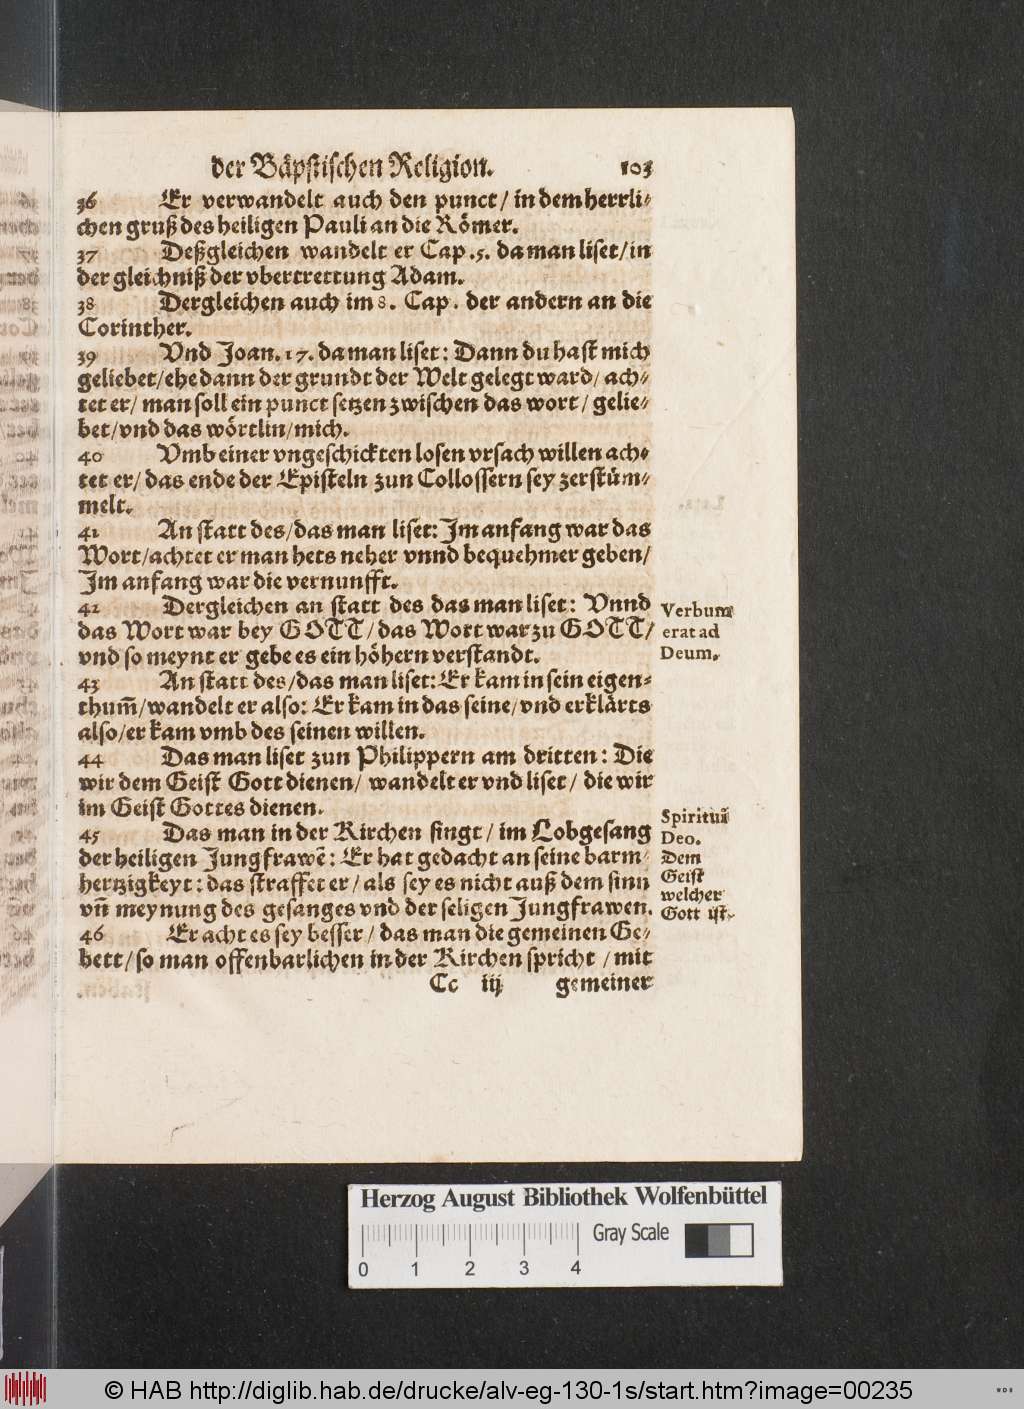 der Bäpstischen Religion. 103
36 Er verwandelt auch den punct / in dem herrli-
chen gruß des heiligen Pauli an die Römer.
37 Deßgleichen wandelt er Cap. 5. da man liset / in
der gleichniß der vbertrettung Adam.
38 Dergleichen auch im 8. Cap. der andern an die
Corinther.
39 Vnd Joan. 17. da man liset: Dann du hast mich
geliebet / ehe dann der grundt der Welt gelegt ward / ach-
tet er / man soll ein punct setzen zwischen das wort / gelie-
bet / vnd das wörtlin / mich.
40 Vmb einer vngeschickten losen vrsach willen ach-
tet er / das ende der Episteln zun Collossern sey zerstüm-
melt.
41 An statt des / das man liset: Im anfang war das
Wort / achtet er man hets neher vnnd bequehmer geben /
Im anfang war die vernunfft.
42 Dergleichen an statt des das man liset: Vnnd
das Wort war bey GOTT / das Wort war zu GOTT /
vnd so meynt er gebe es ein höhern verstandt.
Verbum
erat ad
Deum.
43 An statt des / das man liset: Er kam in sein eigen-
thum̃ / wandelt er also: Er kam in das seine / vnd erklärts
also / er kam vmb des seinen willen.
44 Das man liset zun Philippern am dritten: Die
wir dem Geist Gott dienen / wandelt er vnd liset / die wir
im Geist Gottes dienen.
45 Das man in der Kirchen singt / im Lobgesang
der heiligen Jungfrawẽ: Er hat gedacht an seine barm-
hertzigkeyt: das straffet er / als sey es nicht auß dem sinn
vñ meynung des gesanges vnd der seligen Jungfrawen.
Spirituĩ
Deo.
Dem
Geist
welcher
Gott ist.
46 Er acht es sey besser / das man die gemeinen Ge-
bett / so man offenbarlichen in der Kirchen spricht / mit
Cc iij gemeiner
Herzog August Bibliothek Wolfenbüttel
Gray Scale
0 1 2 3 4
© HAB http://diglib.hab.de/drucke/alv-eg-130-1s/start.htm?image=00235